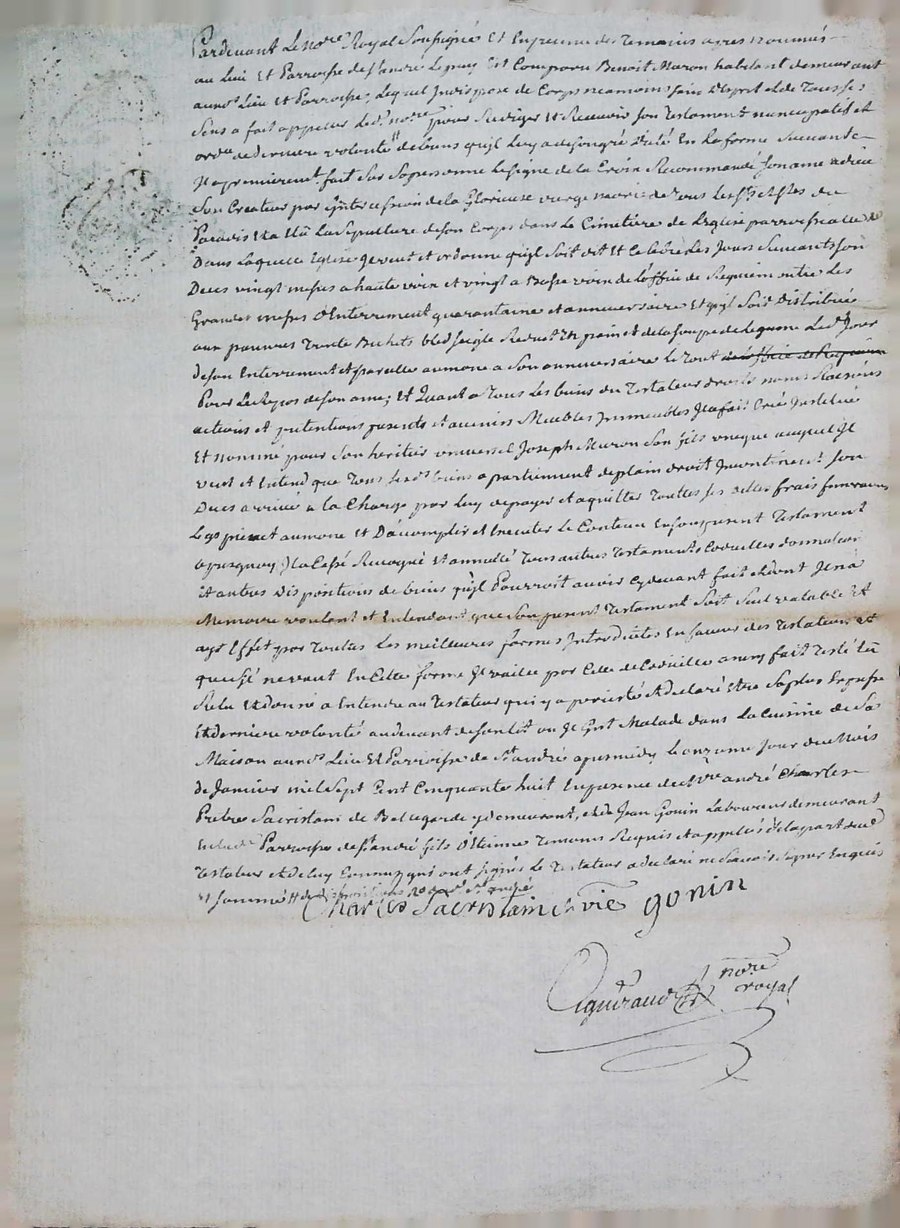 Pardevant Le no.re Royal Soussigné Et En presence des Temoins apres nommés
au Lieu Et Parroisse de St andré Le puy Est Comparu Benoit Muron habitant demeurant
aud.t Lieu Et Parroisse, Lequel Indispose de Corps neamoins sain d'Esprit et de Tous ses
Sens a fait appeller Led.t no.re pour Rediger Et Recevoir son Testament nuncupatif et
ord.re de derniere volonté de biens qu'il Luy a de son gré dicté En La forme Suivante
Et premierem.t fait Sur Sa personne Le Signe de la Croix Recommandé Son ame a dieu
Son Createur par L'intercession de la Glorieuse vierge marie de Tous les S.ts Et S.tes du
Paradis Et a Elu La Sepulture de son Corps dans Le Cimetière de L'eglise parroissialle
Dans Laquelle Eglise Je veut et ordonne qu'il Soit dit Et Celebré Les Jours Suivants Son
Deces vingt messes a haute voix et vingt a Basse voix de L'office de Requiem outre Les
Grandes messes d'Enterrement quarantaine et anniversaire Et qu'il Soit Distribuée
aux pauvres Trente Bichets bled Seigle Reduit En pain et de la Soupe de Legume Led.t Jour
de son Enterrement et pareille aumone a Son anniversaire le tout de L'office de Requiem
Pour Le Repos de son ame; Et Quant a Tous Les biens du Testateur droits noms Raisons
actions et pretentions presents et avenirs Meubles Immeubles Il a fait Créé Institué
Et nommé pour Son heritier universel Joseph Muron Son fils unique auquel Il
veut et Entend que Tous Sesd.ts biens apartiennent de plain droit Incontinent Son
Deces arrivé a la Charge par Luy de payer et aquitter Toutes ses dettes frais funeraires
Legs pie et aumone Et D'acomplir et Executer Le Contenu En Son present Testament
Il a Cassé Revoqué Et annullé Tous autres Testaments Codicilles donnations
Et autres Dispositions de biens qu'il Pourroit avoir Cy devant fait et dont Il n'a
Memoire voulant et Entendant que Son present Testament Soit Seul valable Et
aye Effet par Toutes Les meilleures formes Introduites En faveur des Testateurs et
que S'il ne vaut En Cette forme Il vaille par Celle de Codicille ainsy fait Testé
Relu Et donné a Entendre au Testateur qui y a persisté Et declaré Etre Sa plus Expresse
Et derniere volonté au devant de Son Lit ou Il Gist Malade dans La Cuisine de Sa
Maison aud.t Lieu Et Parroisse de St andré apres midy Le onzieme Jour du Mois
De Janvier mil Sept Cent Cinquante huit En presence de S.re andré Charles
Prêtre Sacristain de Bellegarde y demeurant, et de Jean Gonin Laboureur demeurant
En Lad.te Parroisse de St andré fils d'Etienne Temoins Requis et appellés de la part du d.
Testateur Et de Luy Connus, qui ont Signés Le Testateur a declaré ne Scavoir Signer Enquis
Et Sommé
Charles Sacristain &
gonin
no.re
royal